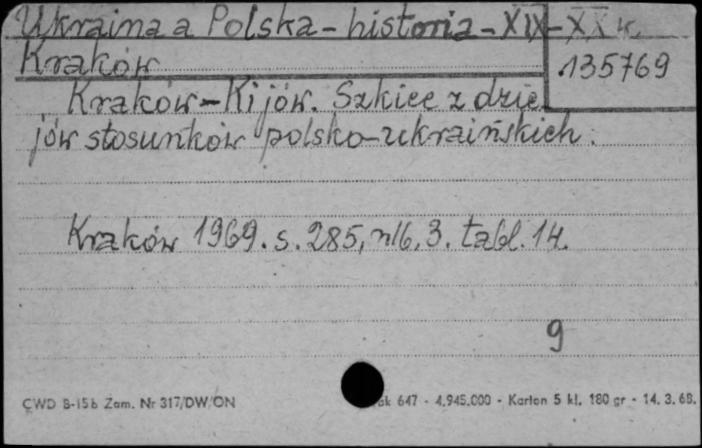 Ukraina a Polska - historia - XIX - XX w.
Kraków
135769
Kraków - Kijów. Szkice z dzie
jów stosunków polsko-ukraińskich.
Kraków 1969. s. 285, nlb. 3. tabl. 14.
9
CWD B-15b Zam. Nr 317/DW/ON
647 - 4.945.000 - Karton 5 kl. 180 gr - 14. 3. 68.